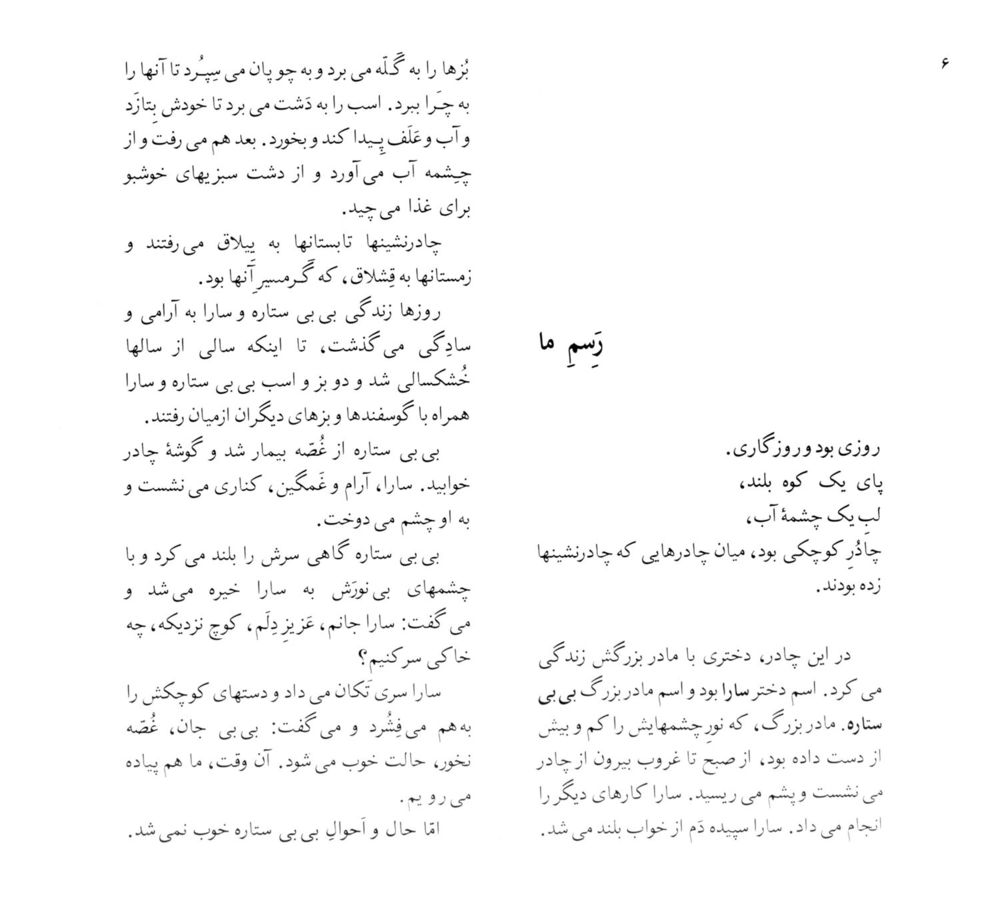 ۶
رَسمِ ما
روزی بود و روزگاری.
پای یک کوه بلند،
لبِ یک چشمهٔ آب،
چادُرِ کوچکی بود، میان چادرهایی که چادرنشینها
زده بودند.
در این چادر، دختری با مادر بزرگش زندگی
می کرد. اسم دختر سارا بود و اسم مادر بزرگ بی بی
ستاره. مادر بزرگ، که نورِ چشمهایش را کم و بیش
از دست داده بود، از صبح تا غروب بیرون از چادر
می نشست و پشم می ریسید. سارا کارهای دیگر را
انجام می داد. سارا سپیده دَم از خواب بلند می شد.
بُزها را به گَلّه می برد و به چوپان می سِپُرد تا آنها را
به چَرا ببرد. اسب را به دَشت می برد تا خودش بِتازَد
و آب و عَلَف پِیدا کند و بخورد. بعد هم می رفت و از
چِشمه آب می آورد و از دشت سبزیهای خوشبو
برای غذا می چید.
چادرنشینها تابستانها به یِیلاق می رفتند و
زمستانها به قِشلاق، که گَرمسیرِ آنها بود.
روزها زندگی بی بی ستاره و سارا به آرامی و
سادِگی می گذشت، تا اینکه سالی از سالها
خُشکسالی شد و دو بز و اسب بی بی ستاره و سارا
همراه با گوسفندها و بزهای دیگران از میان رفتند.
بی بی ستاره از غُصّه بیمار شد و گوشهٔ چادر
خوابید. سارا، آرام و غَمگین، کناری می نشست و
به او چشم می دوخت.
بی بی ستاره گاهی سرش را بلند می کرد و با
چشمهای بی نورَش به سارا خیره می شد و
می گفت: سارا جانم، عَزیزِ دِلَم، کوچ نزدیکه، چه
خاکی سر کنیم؟
سارا سری تَکان می داد و دستهای کوچکش را
به هم می فِشُرد و می گفت: بی بی جان، غُصّه
نخور، حالت خوب می شود. آن وقت، ما هم پیاده
می رویم.
امّا حال و اَحوالِ بی بی ستاره خوب نمی شد.